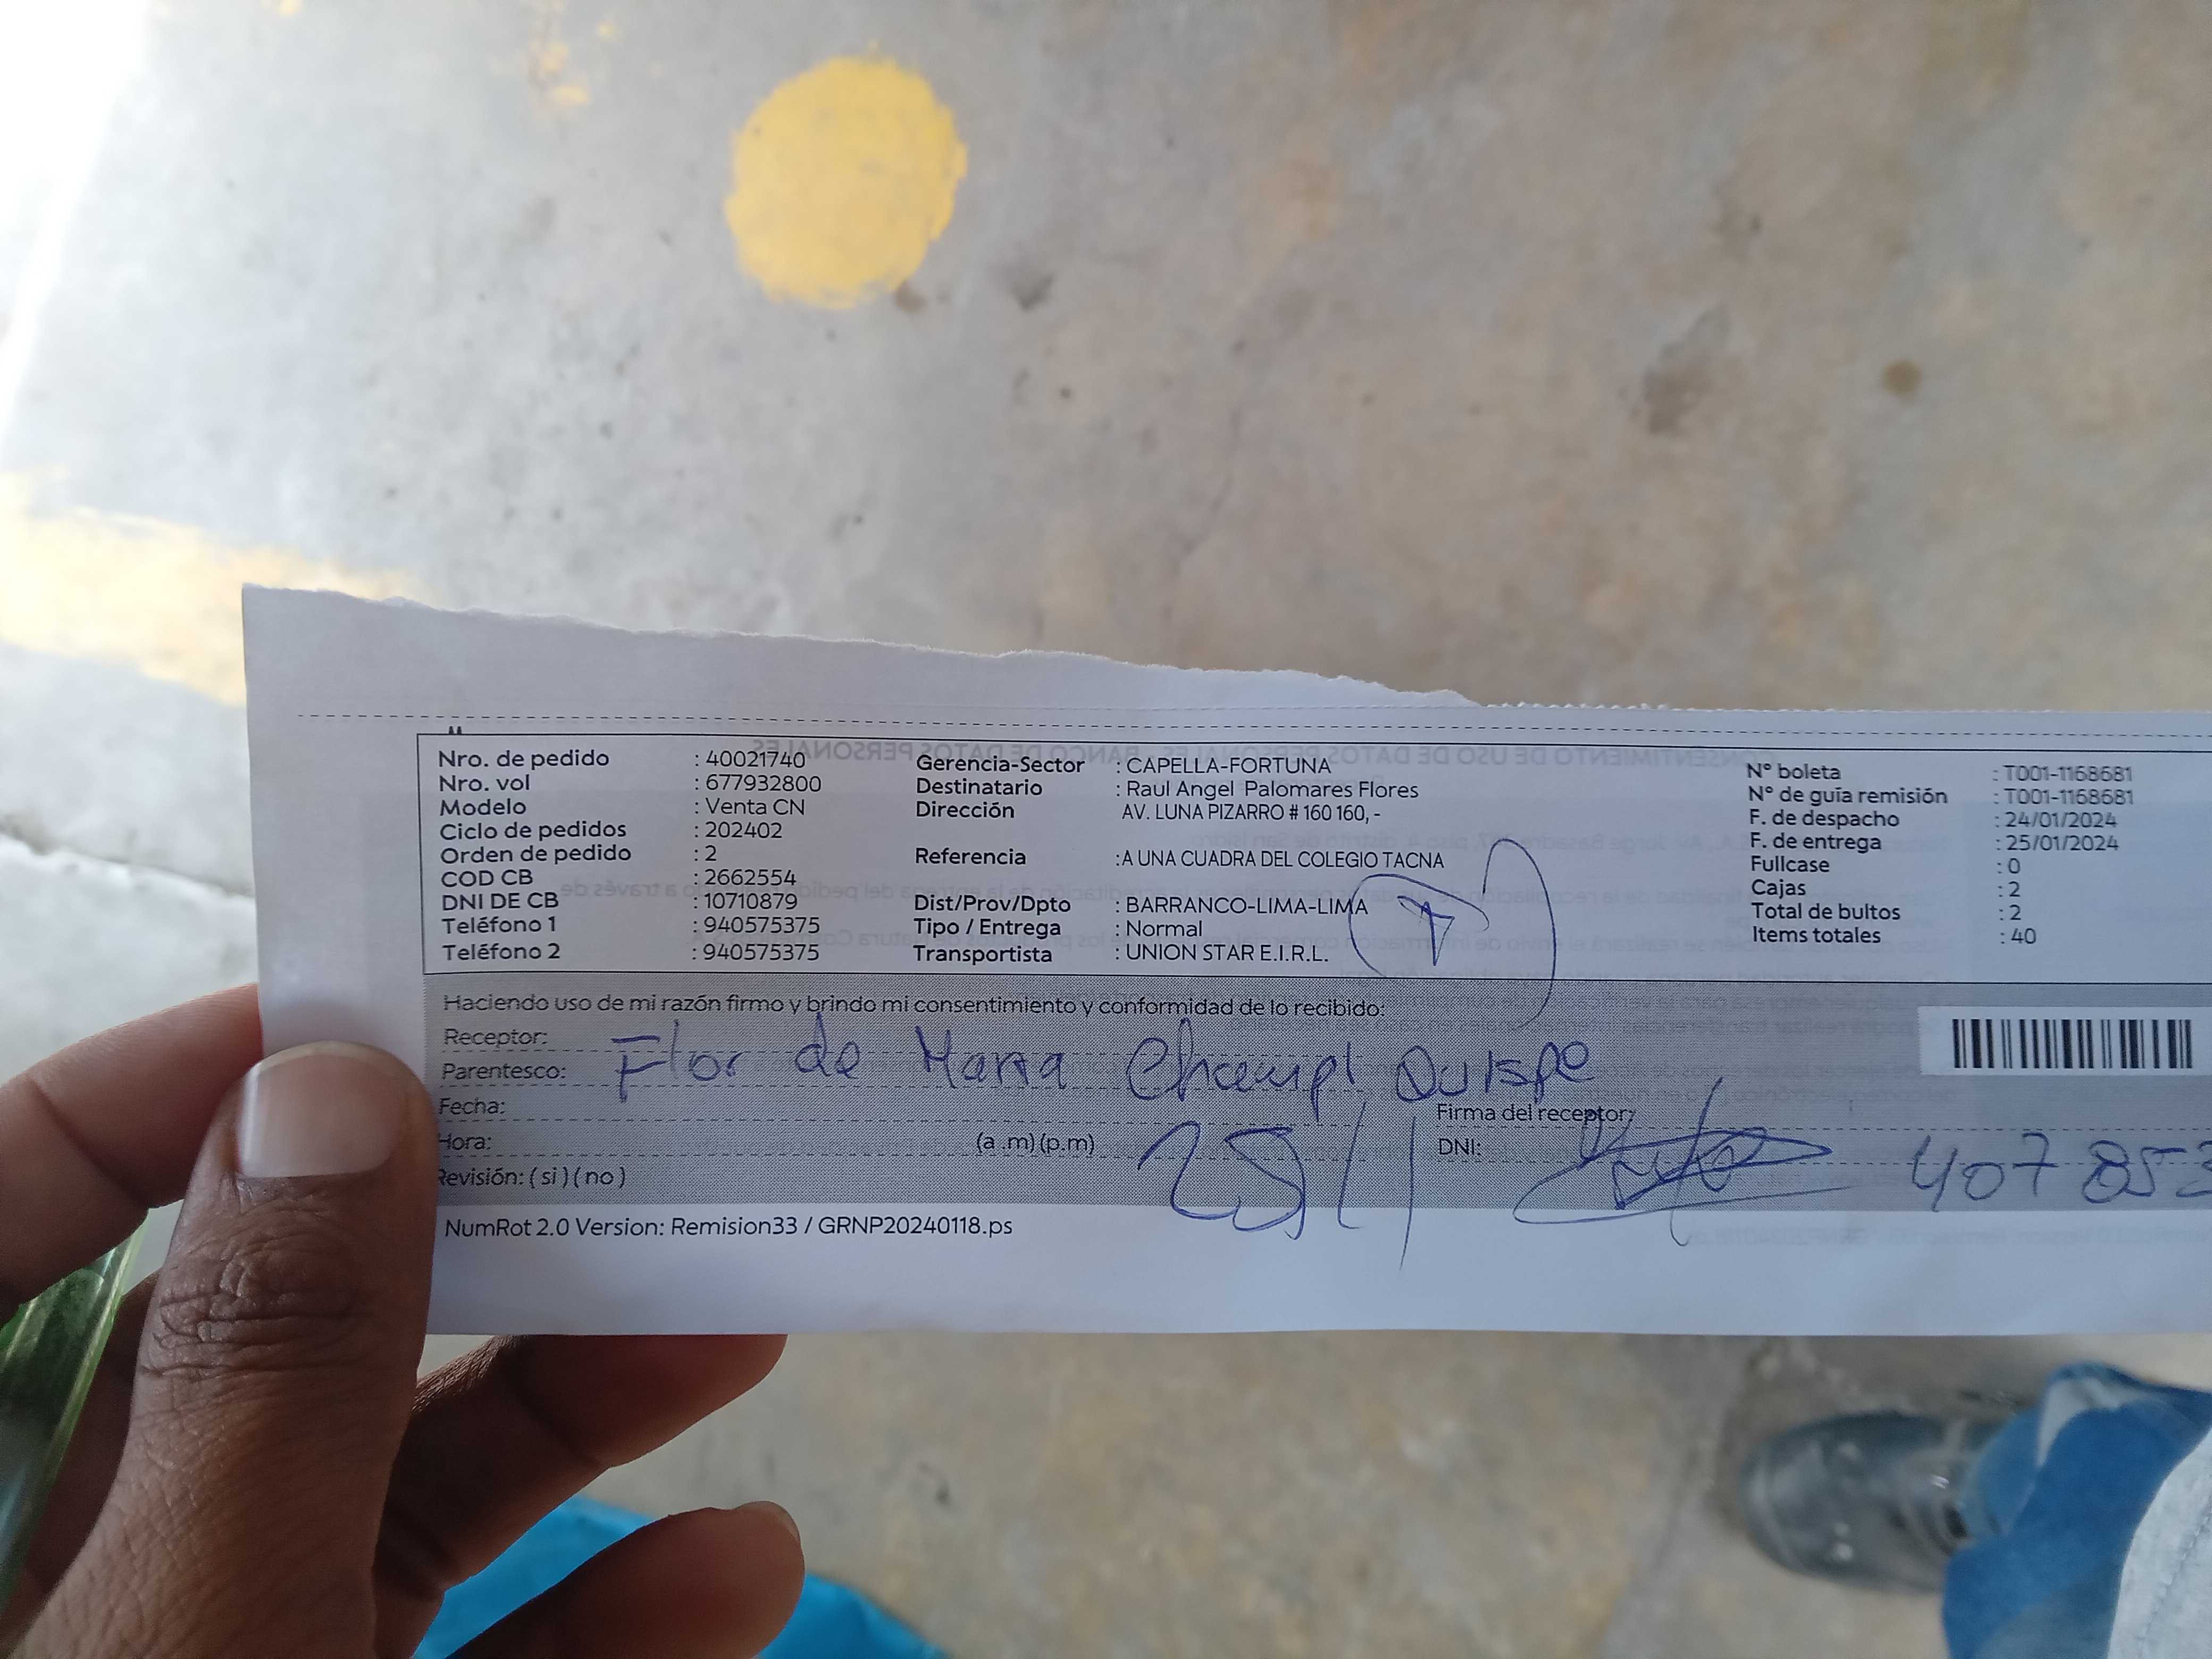 Nro. de pedido : 40021740
Nro. vol : 677932800
Modelo : Venta CN
Ciclo de pedidos : 202402
Orden de pedido : 2
COD CB : 2662554
DNI DE CB : 10710879
Teléfono 1 : 940575375
Teléfono 2 : 940575375
Gerencia-Sector : CAPELLA-FORTUNA
Destinatario : Raul Angel Palomares Flores
Dirección AV. LUNA PIZARRO # 160 160, -
Referencia :A UNA CUADRA DEL COLEGIO TACNA
Dist/Prov/Dpto : BARRANCO-LIMA-LIMA
Tipo / Entrega : Normal
Transportista : UNION STAR E.I.R.L.
N° boleta : T001-1168681
N° de guía remisión : T001-1168681
F. de despacho : 24/01/2024
F. de entrega : 25/01/2024
Fullcase : 0
Cajas : 2
Total de bultos : 2
Items totales : 40
Haciendo uso de mi razón firmo y brindo mi consentimiento y conformidad de lo recibido:
Receptor:
Parentesco: Flor de Maria Champi Quispe
Fecha:
Firma del receptor:
Hora: (a .m) (p.m)
DNI: 407853
Revisión: ( si ) ( no )
NumRot 2.0 Version: Remision33 / GRNP20240118.ps